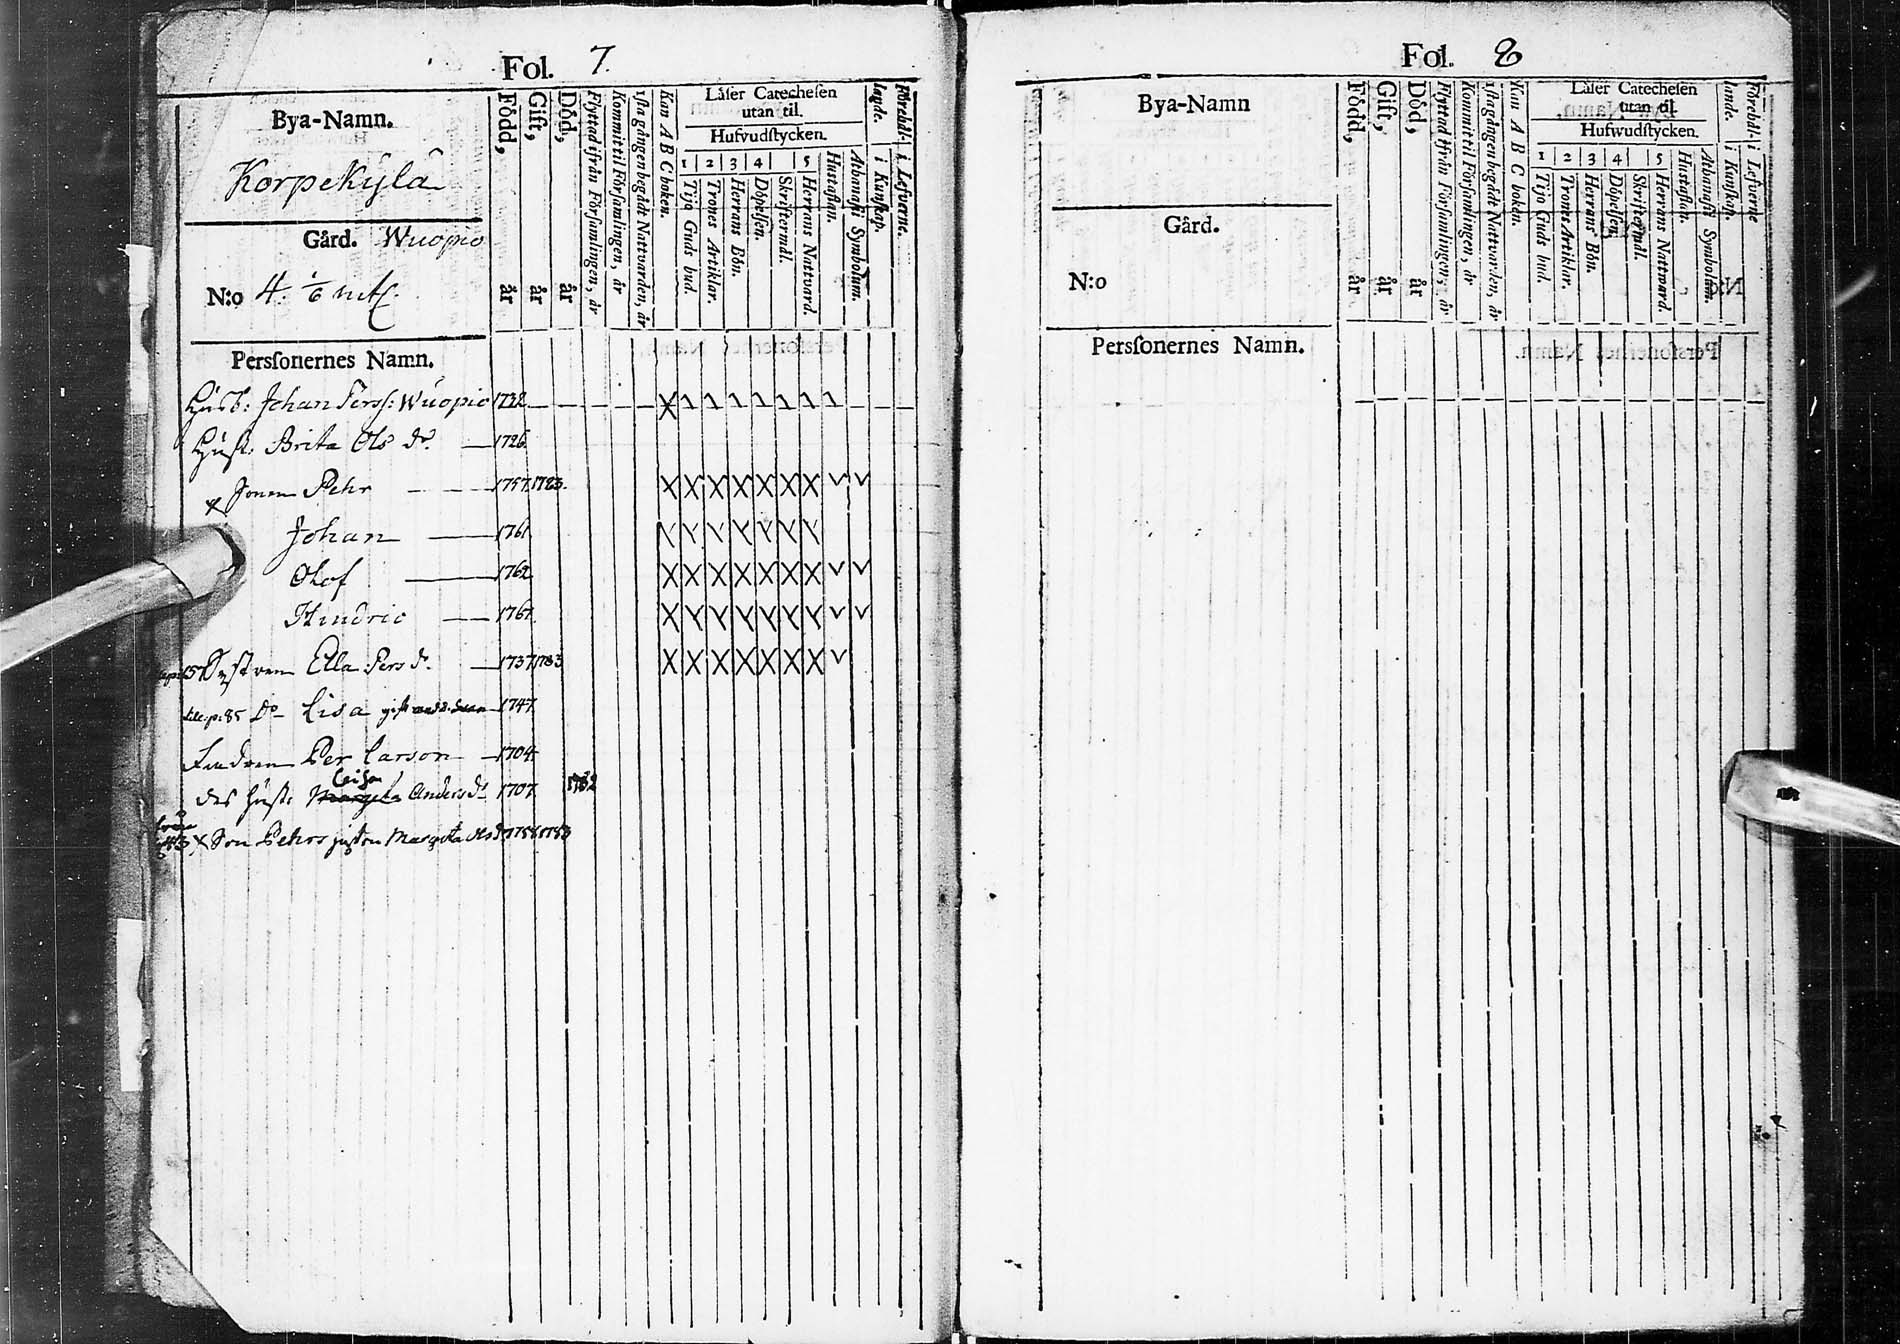 Fol. 7.
Bya-Namn.
Korpekylä
Gård. Wuopio
N:o 4. 1/6 mtl.
Född, år
Gift, år
Död, år
Flyttad ifrån Församlingen, år
Kommit til Församlingen, år
1sta gången begådt Nattvarden, år
Kan A B C boken.
Läser Catechesen
utan til.
Hufvudstycken.
1 2 3 4 5
Tijo Guds bud.
Trones Artiklar.
Herrans Bön.
Döpelsen.
Skriftermål.
Herrans Nattvard.
Hustaflan.
Athanasii Symbolum.
i Kunskap.
i Lefverne.
Personernes Namn.
Husb: Johan Perss: Wuopio 1732
Hust: Brita Ols dr. 1726
x Sonen Pehr 1757. 1783.
Johan 1761
Olof 1762
Hindric 1767.
Systren Ella Pers dr. 1737. 1783
Do Lisa 1747.
Per Larson 1704.
des hust: Margeta Caisa Anders dr 1707. 1782
x Son Pehrs hustru Margeta Ols dr 1758 1783
Fol. 8
Bya-Namn
Gård.
N:o
Född, år
Gift, år
Död, år
Flyttad ifrån Församlingen, år
Kommit til Församlingen, år
1sta gången begådt Nattvarden, år
Kan A B C boken.
Läser Catechesen
utan til.
Hufwudstycken.
1 2 3 4 5
Tijo Guds bud.
Trones Artiklar.
Herrans Bön.
Döpelsen.
Skriftermål.
Herrans Nattvard.
Hustaflan.
Athanasii Symbolum.
i Kunskap.
i Lefverne
Personernes Namn.